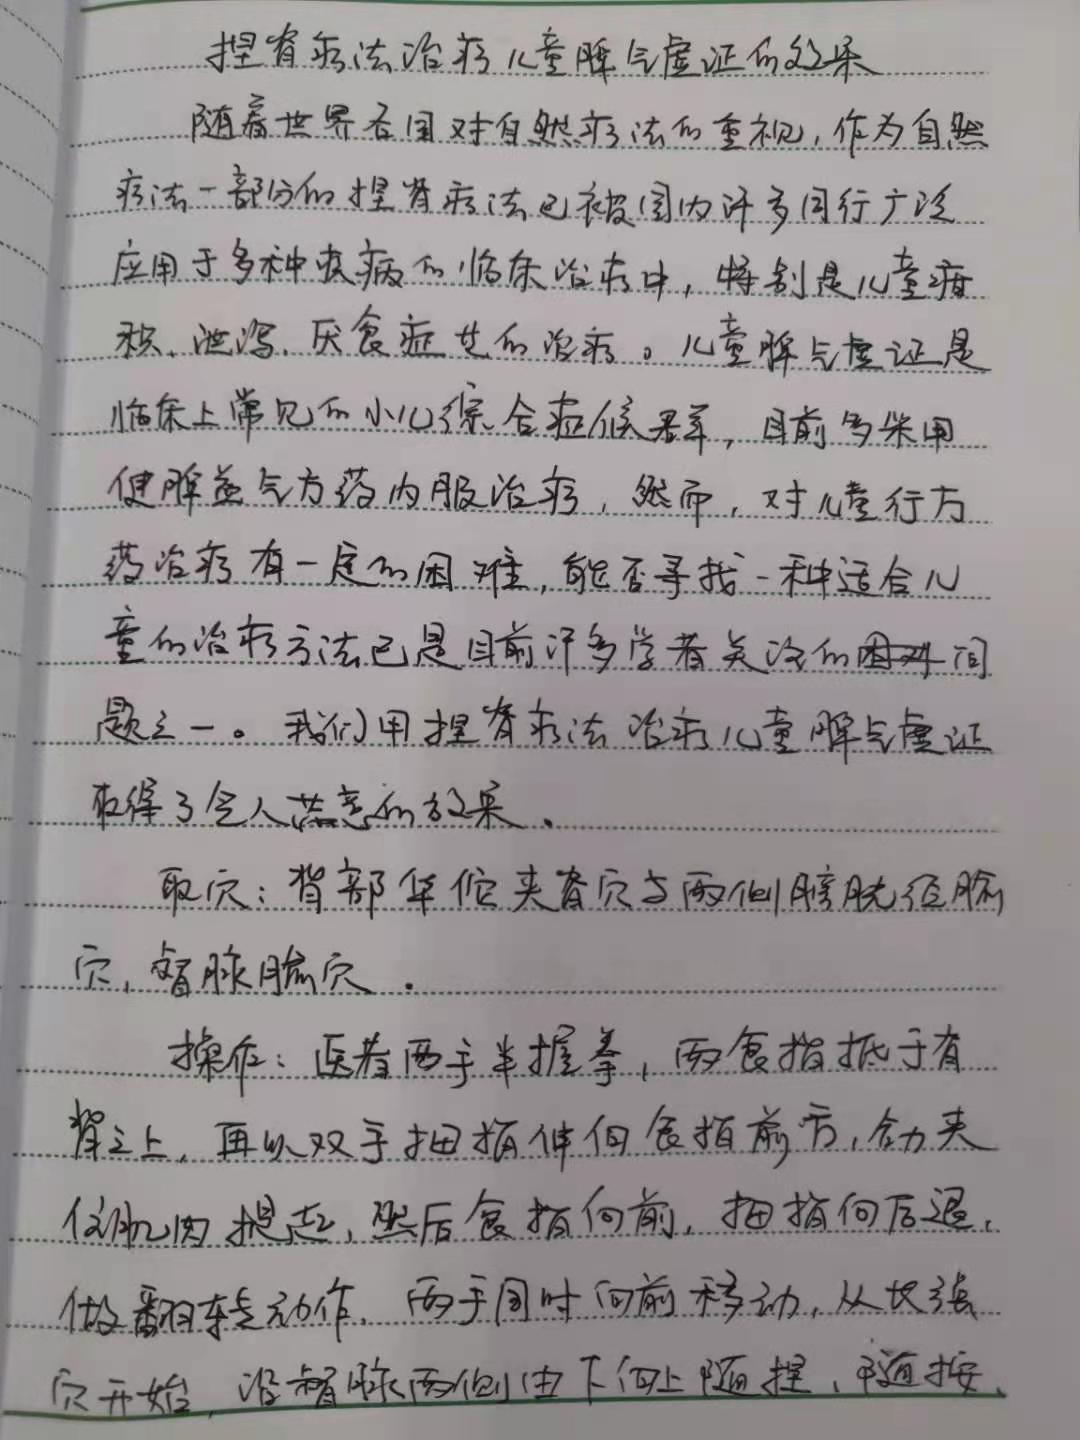 捏脊疗法治疗儿童脾气虚证的效果
随着世界各国对自然疗法的重视,作为自然
疗法一部分的捏脊疗法已被国内许多同行广泛
应用于多种疾病的临床治疗中,特别是儿童疳
积、泄泻、厌食症等的治疗。儿童脾气虚证是
临床上常见的小儿综合症候群,目前多采用
健脾益气方药内服治疗,然而,对儿童行方
药治疗有一定的困难,能否寻找一种适合儿
童的治疗方法已是目前许多学者关注的问
题之一。我们用捏脊疗法治疗儿童脾气虚证
取得了令人满意的效果.
取穴:背部华佗夹脊穴与两侧膀胱经腧
穴,督脉腧穴.
操作:医者两手半握拳,两食指抵于脊
背之上,再以双手拇指伸向食指前方,合力夹
住肌肉提起,然后食指向前,拇指向后退,
做翻转动作.两手同时向前移动,从长强
穴开始,沿督脉两侧由下向上随捏、随按、